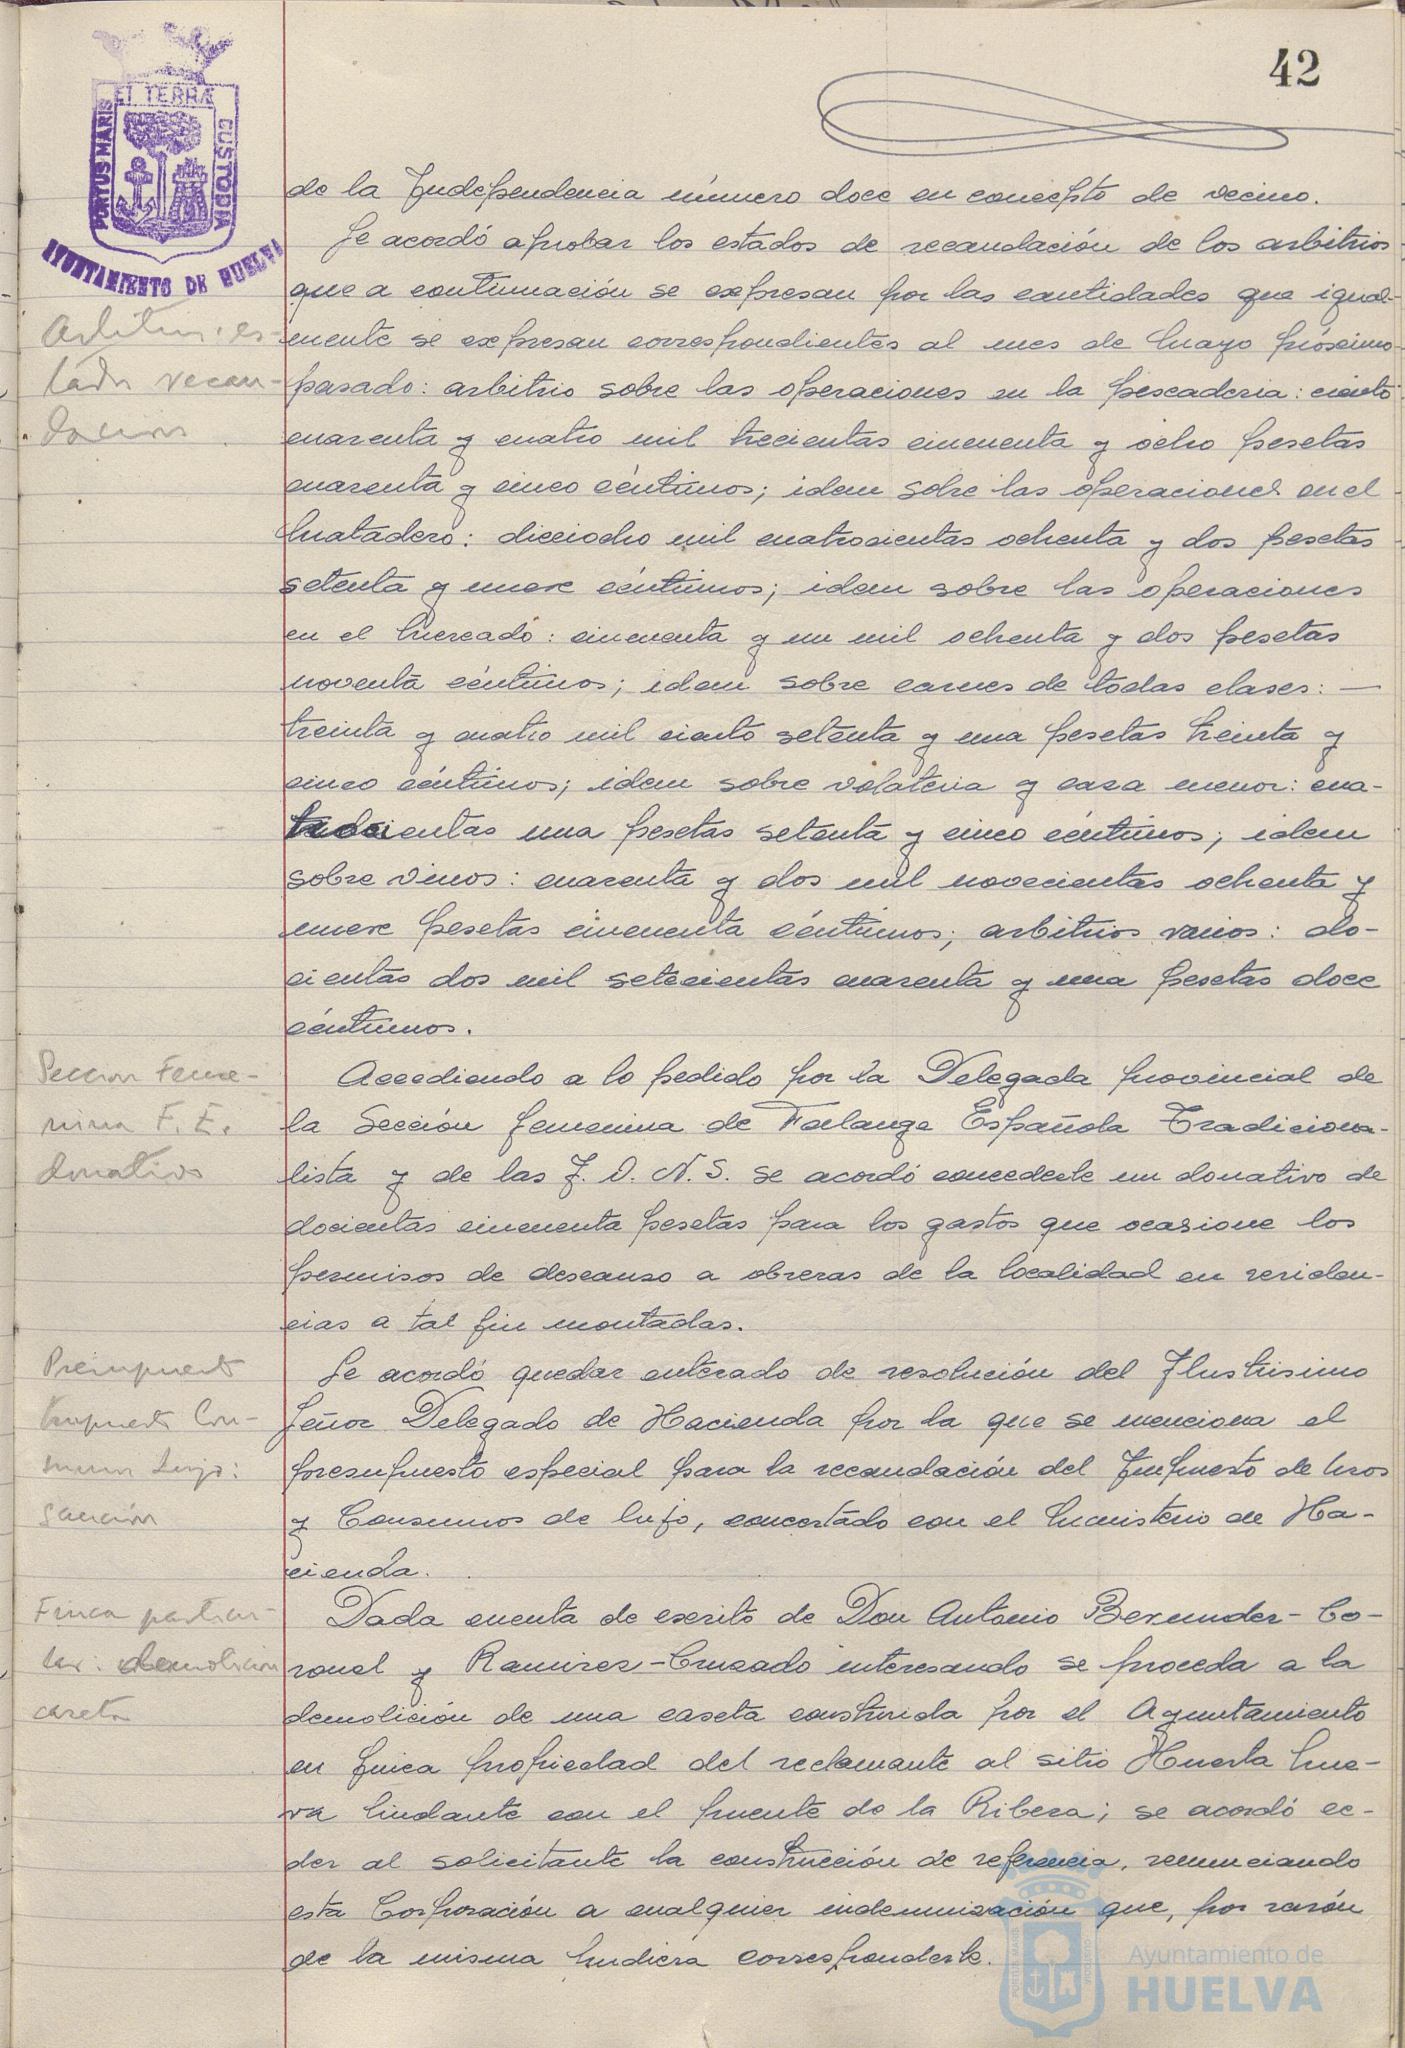 42
ET TERRÆ
PORTUS MARIS
CUSTODIA
AYUNTAMIENTO DE HUELVA
de la Independencia número doce en concepto de vecino.
Se acordó aprobar los estados de recaudación de los arbitrios
que a continuación se expresan por las cantidades que igual-
mente se expresan correspondientes al mes de Mayo próximo
pasado: arbitrio sobre las operaciones en la pescaderia: ciento
cuarenta y cuatro mil trecientas cincuenta y ocho pesetas
cuarenta y cinco céntimos; idem sobre las operaciones en el
Matadero: dieciocho mil cuatrocientas ochenta y dos pesetas
setenta y nueve céntimos; idem sobre las operaciones
en el Mercado: cincuenta y un mil ochenta y dos pesetas
noventa céntimos; idem sobre carnes de todas clases: —
treinta y cuatro mil ciento setenta y una pesetas treinta y
cinco céntimos; idem sobre volateria y caza menor: cua-
trocientas una pesetas setenta y cinco céntimos; idem
sobre vinos: cuarenta y dos mil novecientas ochenta y
nueve pesetas cincuenta céntimos; arbitrios varios: do-
cientas dos mil setecientas cuarenta y una pesetas doce
céntimos.
Accediendo a lo pedido por la Delegada provincial de
la Sección femenina de Falange Española Tradiciona-
lista y de las J. O. N. S. se acordó concederle un donativo de
docientas cincuenta pesetas para los gastos que ocasione los
permisos de descanso a obreras de la localidad en residen-
cias a tal fin montadas.
Se acordó quedar enterado de resolución del Ilustrisimo
Señor Delegado de Hacienda por la que se menciona el
presupuesto especial para la recaudación del Impuesto de Usos
y Consumos de lujo, concertado con el Ministerio de Ha-
cienda.
Dada cuenta de escrito de Don Antonio Bermudez-Co-
ronel y Ramirez-Cruzado interesando se proceda a la
demolición de una caseta construida por el Ayuntamiento
en finca propiedad del reclamante al sitio Huerta Nue-
va lindante con el puente de la Ribera; se acordó ce-
der al solicitante la construcción de referencia, renunciando
esta Corporación a cualquier indemnización que, por razón
de la misma pudiera corresponderle.
Arbitrios: es-
tados recau-
dación
Seccion Feme-
nina F. E.
donativos
Presupuesto
Impuesto Con-
sumos Lujo:
sanción
Finca particu-
lar: demolicion
caseta
Ayuntamiento de
HUELVA